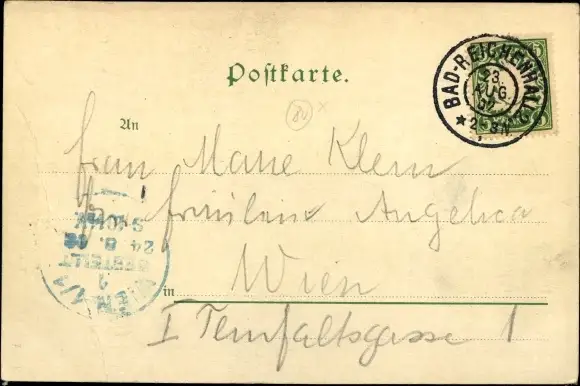 Postkarte.
BAD-REICHENHALL
23.
AUG.
2-3N.
An
Frau Marie Klein
Fräulein Angelica
in Wien
I Teinfaltsgasse 1
WIEN 1/1
1
BESTELLT
24.8.